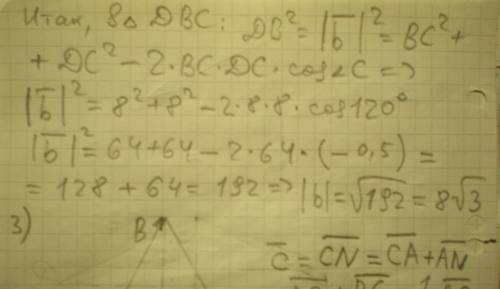 Итак, в △ DBC: DB² = |b̅|² = BC² +
+ DC² − 2·BC·DC·cos∠C =>
|b̅|² = 8² + 8² − 2·8·8·cos120°
|b̅|² = 64+64 − 2·64·(−0,5) =
= 128 + 64 = 192 => |b| = √192 = 8√3
3)
B
c̅ = C̅N̅ = C̅A̅ + A̅N̅